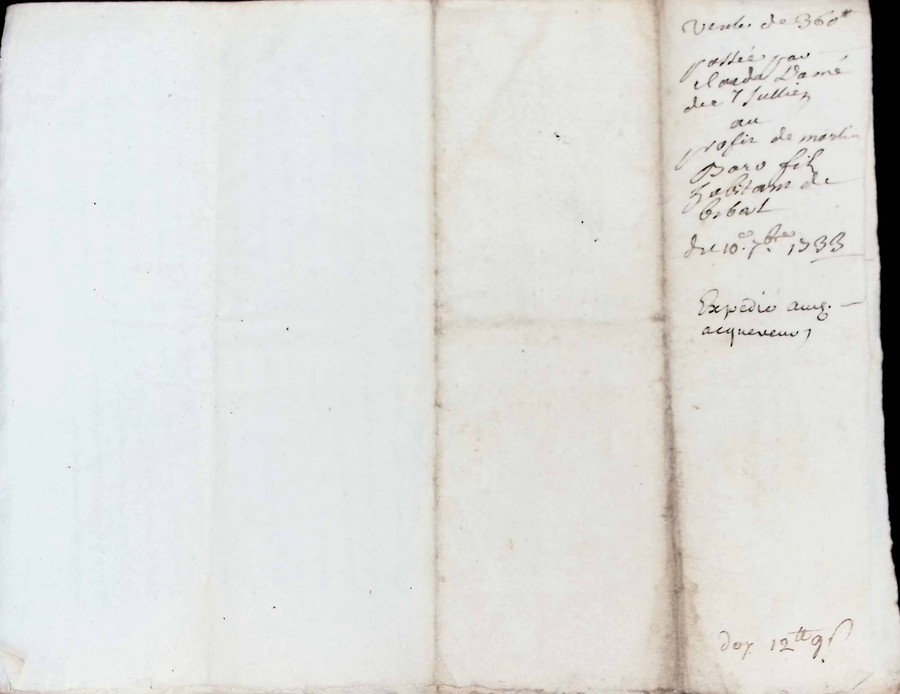 Vente de 360tt
passée par
Damé
dit Jullien
au
profit de martin
Baro fils
habitant de
du 10e 7bre 1733
Expédié aux
acquereurs
12tt 9s